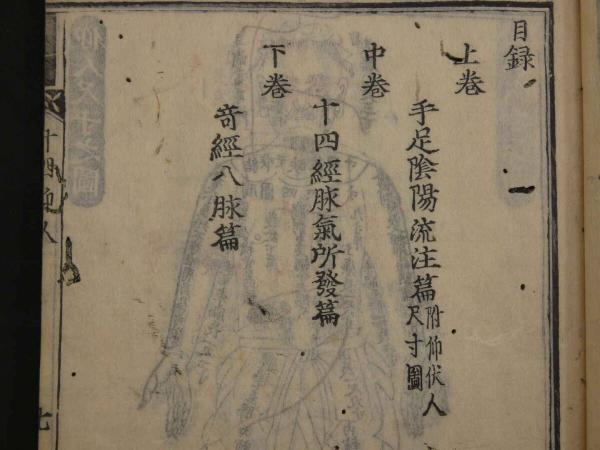 目録
上巻
手足陰陽流注篇附仰伏人尺寸圖
中巻
十四經脉氣所發篇
下巻
奇經八脉篇